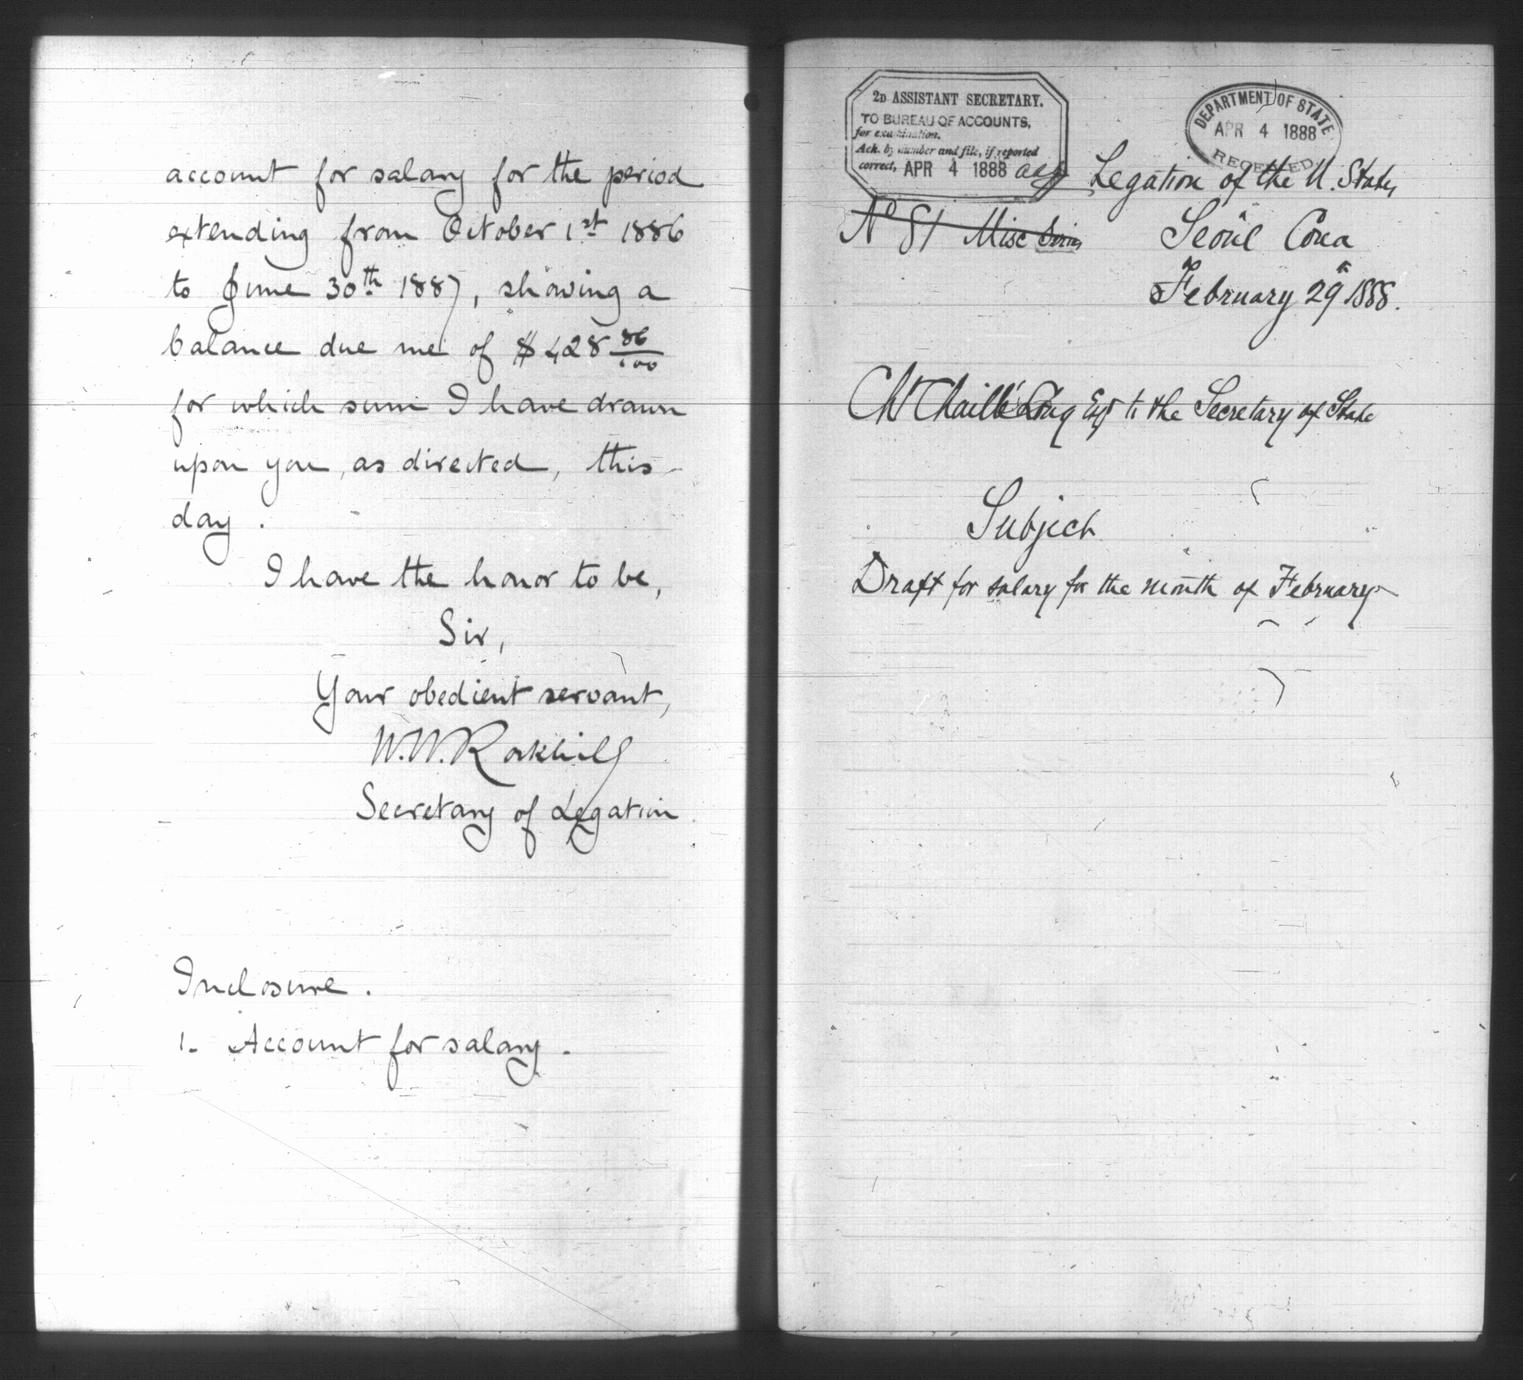 account for salary for the period
extending from October 1st 1886
to June 30th 1887, showing a
balance due me of $428 86/100
for which sum I have drawn
upon you, as directed, this
day.
I have the honor to be,
Sir,
Your obedient servant,
W.W. Rockhill
Secretary of Legation
Inclosure.
1. Account for salary.
2D ASSISTANT SECRETARY.
TO BUREAU OF ACCOUNTS,
for examination.
Ack. by number and file, if reported
correct, APR 4 1888
DEPARTMENT OF STATE
APR 4 1888
RECEIVED
Legation of the U. States
No 81 Misc Series
Seoul Corea
February 29th 1888.
Ch Chaillé Long Esq to the Secretary of State
Subject
Draft for salary for the month of February